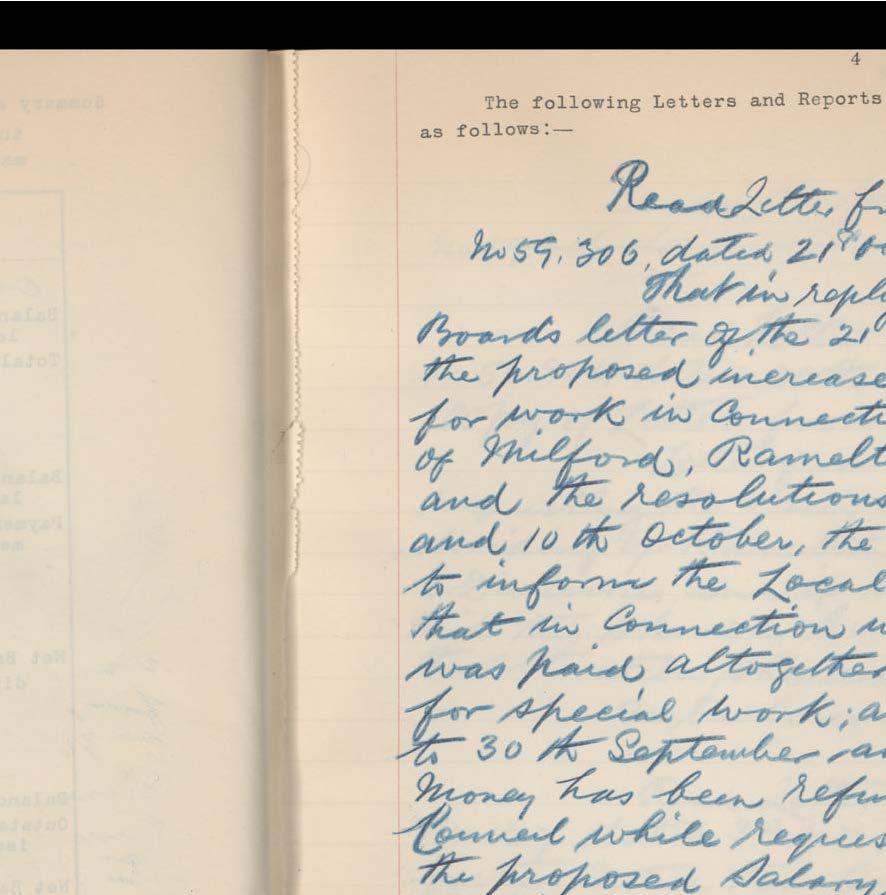 4
The following Letters and Reports
as follows:—
Read Letter
No 59.306, dated 21st
That in reply
Boards letter of the 21
the proposed increase
for work in Connecti
of Milford, Ramelt
and the resolutions
and 10th October, the
to inform the Local
that in Connection
was paid altogether
for special work; a
to 30th September an
Money has been refu
Council while reques
the proposed Salary